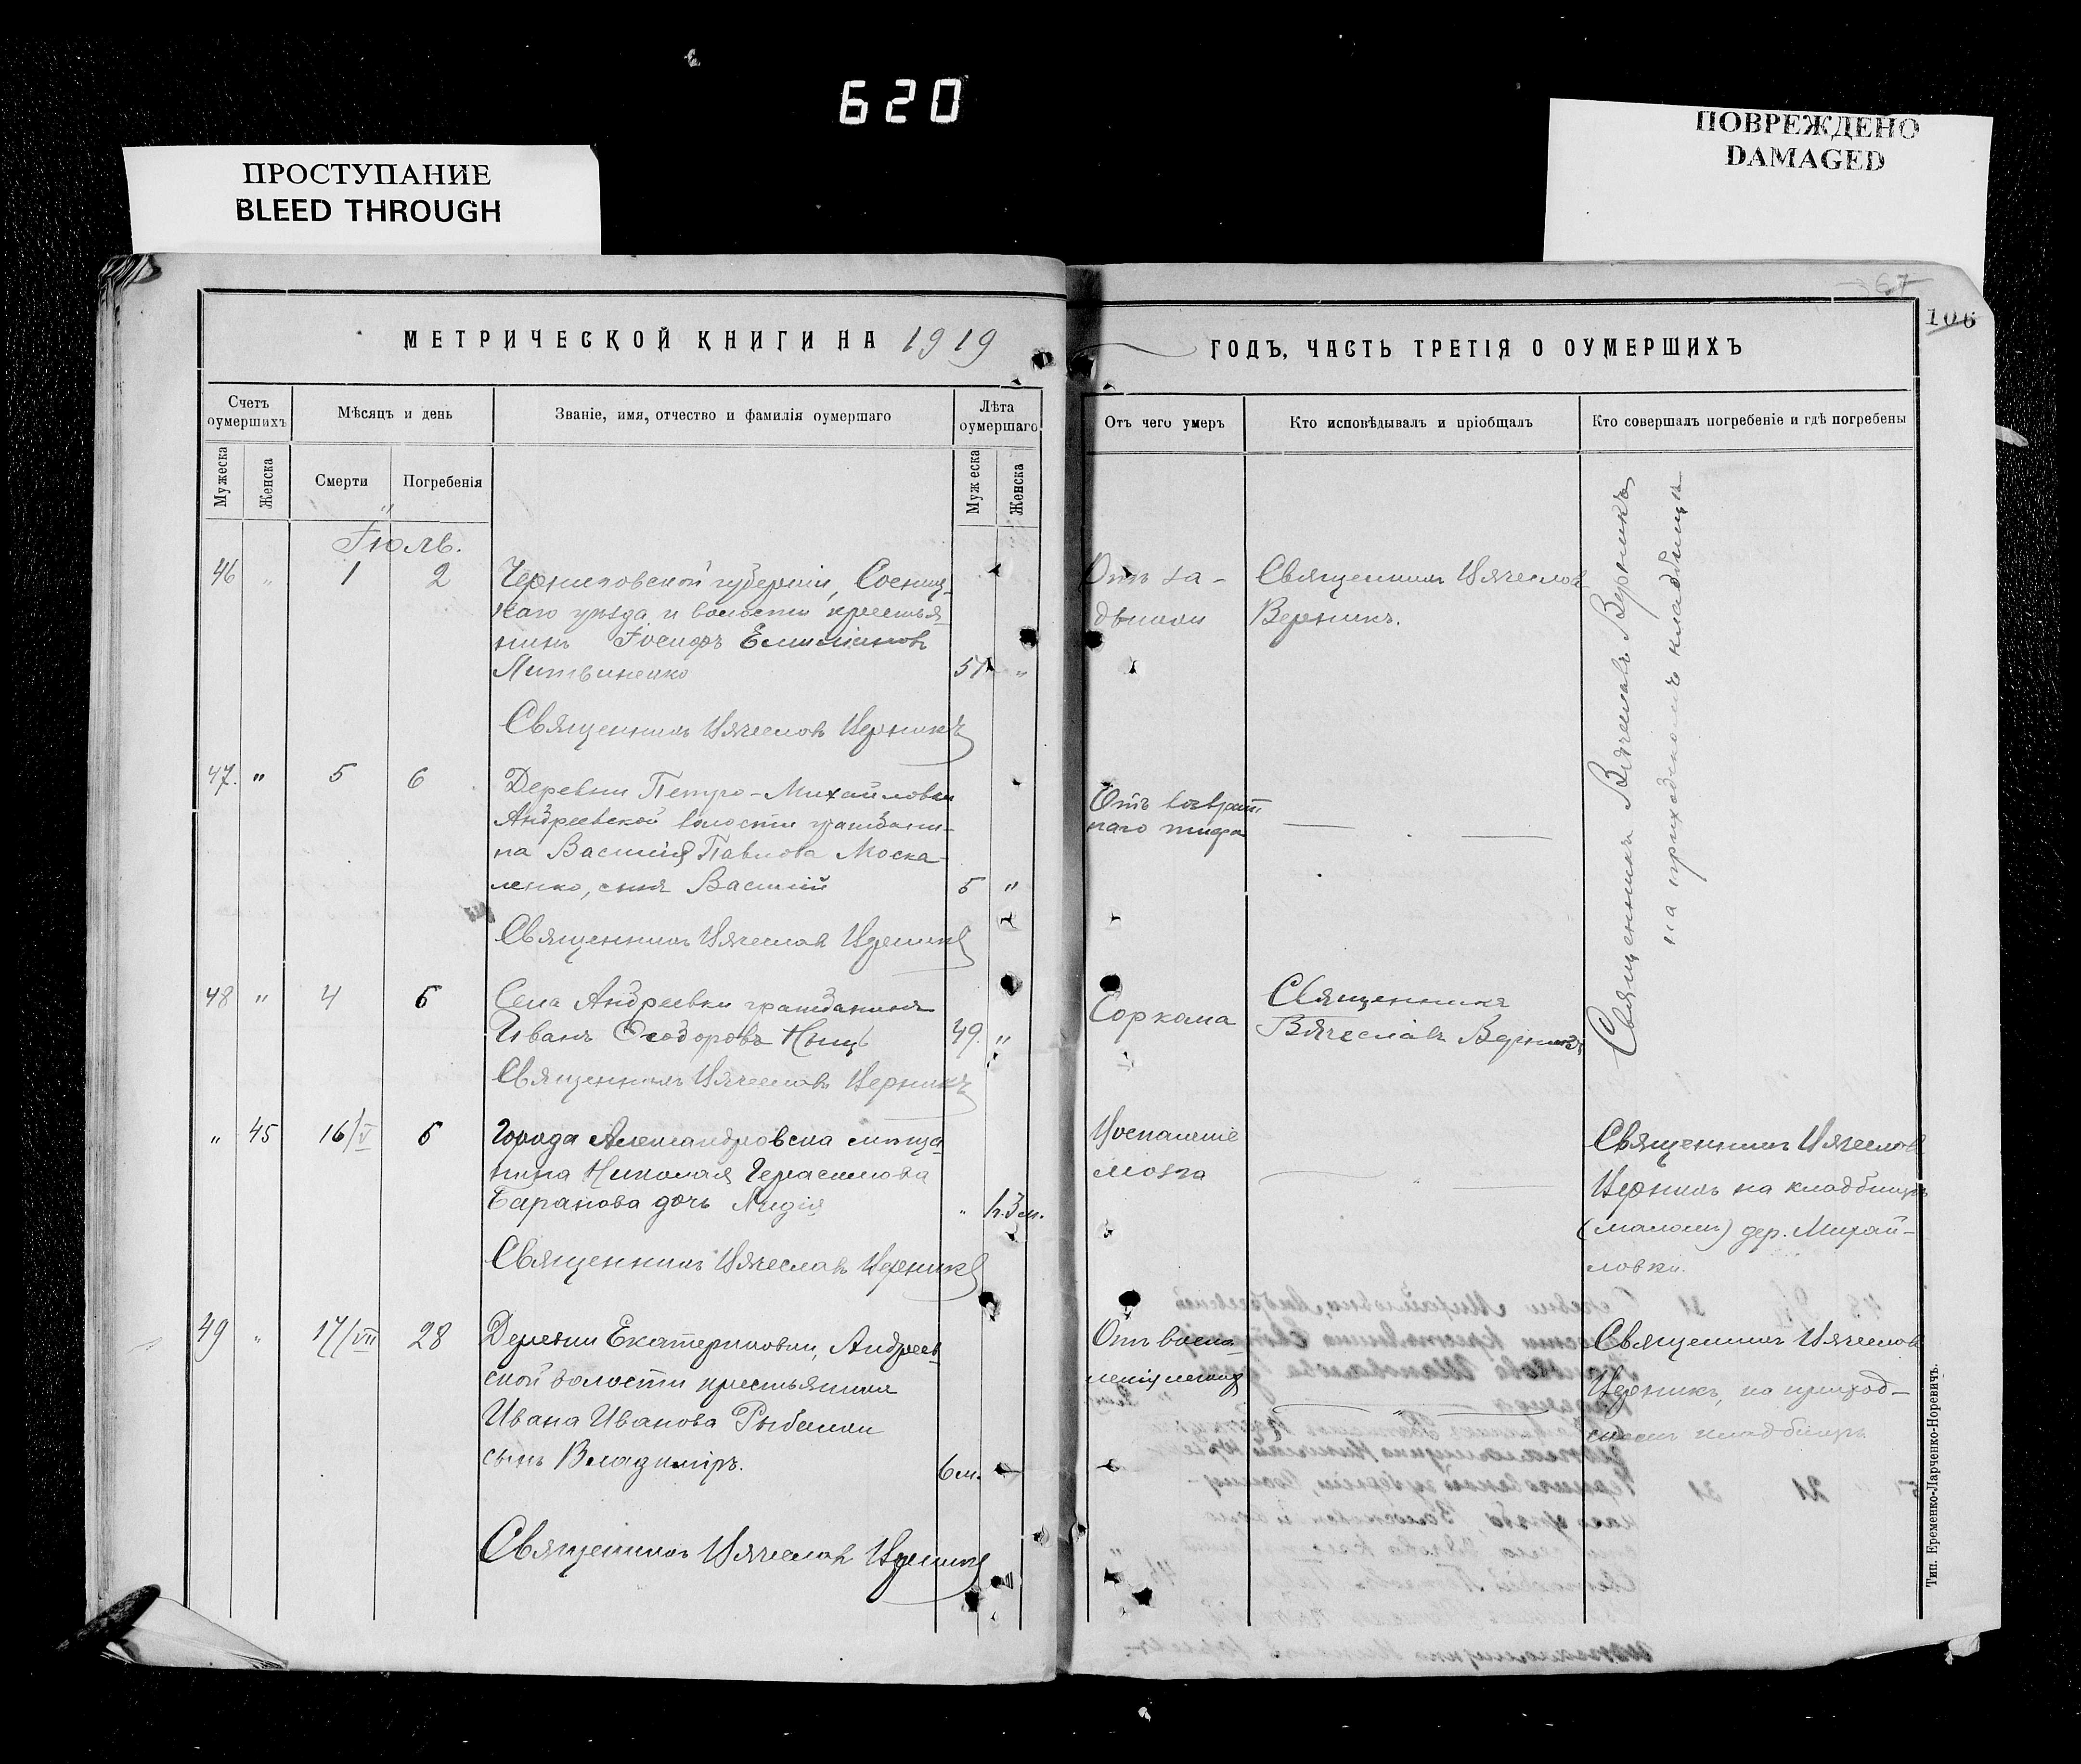 620
ПРОСТУПАНИЕ
BLEED THROUGH
ПОВРЕЖДЕНО
DAMAGED
67
106
МЕТРИЧЕСКОЙ КНИГИ НА 1919
ГОДЪ, ЧАСТЬ ТРЕТІЯ О ОУМЕРШИХЪ
Счетъ оумершихъ
Мѣсяцъ и день
Званіе, имя, отчество и фамилія оумершаго
Лѣта оумершаго
Отъ чего умеръ
Кто исповѣдывалъ и пріобщалъ
Кто совершалъ погребеніе и гдѣ погребены
Мужеска
Женска
Смерти
Погребенія
Мужеска
Женска
Іюль.
46 " 1 2
Черниговской губерніи, Сосниц-
каго уѣзда и волости крестья-
нинъ Іосифъ Емиліановъ
Литвиненко 57 "
Священникъ Вячеславъ Верникъ
Священникъ Вячеславъ
Верникъ.
Священникъ Вячеславъ Верникъ
на приходскомъ кладбищѣ
47. " 5 6
Деревни Петро-Михайловки
Андреевской волости граждани-
на Василія Павлова Моска-
ленко, сынъ Василій 5 "
Священникъ Вячеславъ Верникъ
Отъ возврат-
наго тифа
48 " 4 6
Села Андреевки гражданинъ
Иванъ Ѳеодоровъ 49. "
Священникъ Вячеславъ Верникъ
Саркома
Священникъ
Вячеславъ Верникъ
" 45 16/V 6
Города Александровска мѣща-
нина Николая Герасимова
Баранова дочь Лидія " 3 м.
Священникъ Вячеславъ Верникъ
Воспаленіе
мозга
Священникъ Вячеславъ
Верникъ на кладбищѣ
(маломъ) дер. Михай-
ловки.
49 " 17/VII 28
Деревни Екатериновки, Андреев-
ской волости крестьянина
Ивана Иванова Рыбалки
сынъ Владиміръ. 6 м.
Священникъ Вячеславъ Верникъ
Отъ воспа-
ленія легкихъ
Священникъ Вячеславъ
Верникъ, на приход-
скомъ кладбищѣ
Тип. Еременко-Ларченко-Норевичъ.